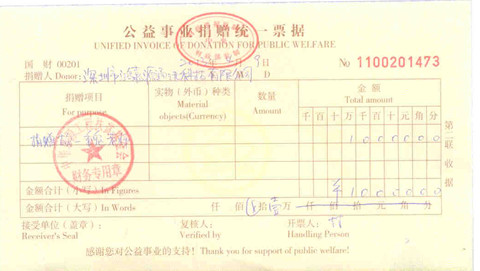 公益事业捐赠统一票据
UNIFIED INVOICE OF DONATION FOR PUBLIC WELFARE
国 财 00201
9日
№ 1100201473
捐赠人 Donor: 深圳市 科技有限公司
Y M D
捐赠项目 实物（外币）种类 数量 金额
For purpose Material objects(Currency) Amount Total amount
千 百 十 万 千 百 十 元 角 分
捐赠
1 0 0 0 0 0 0
财务专用章
金额合计（小写）In Figures ￥ 1 0 0 0 0 0 0
金额合计（大写）In Words 仟 佰 拾 壹 万 仟 佰 拾 元 角 分
接受单位（盖章）： 复核人： 开票人：
Receiver's Seal Verified by Handling Person
感谢您对公益事业的支持！ Thank you for support of public welfare!
第二联 收据